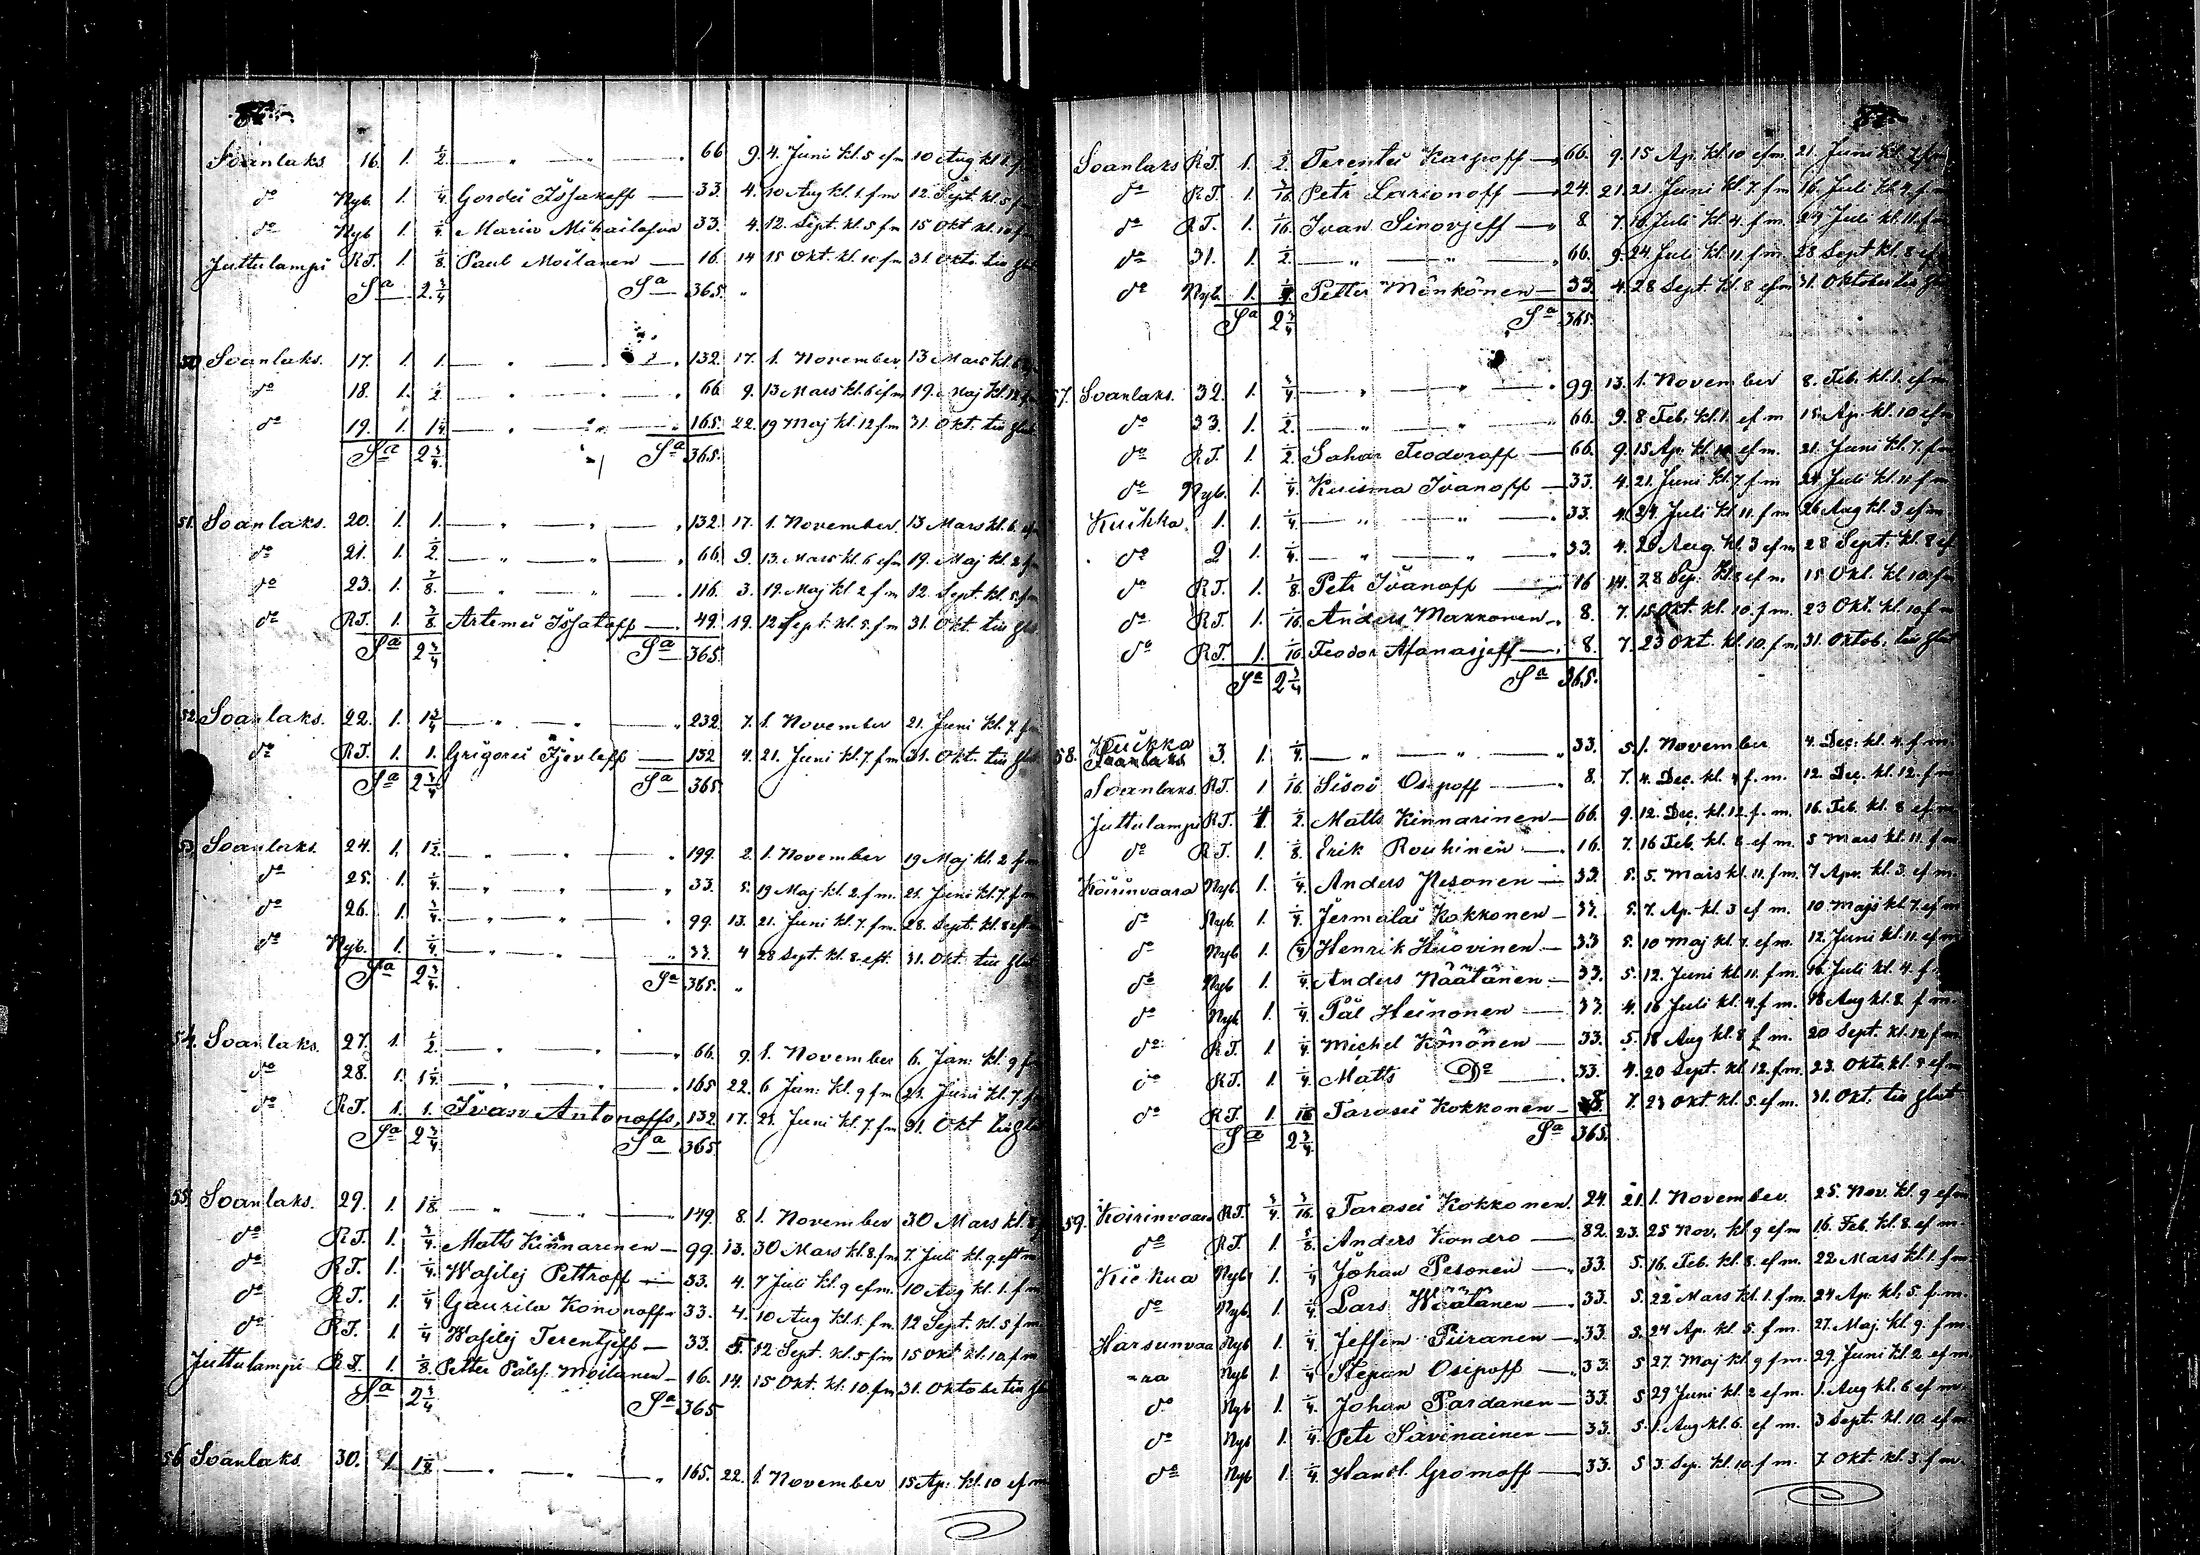 Soanlaks 16. 1. ½ " " 66 9. 4. Juni kl. 5 efm 10 Aug kl. 1 f
do Nyb. 1. ¼ Gordei Issakoff 33. 4. 10 Aug kl. 1. fm 12. Sept. kl. 5 f
do Nyb 1 ¼ Maria Mihailofna 33. 4. 12. Sept. kl. 5 fm 15 Okt kl. 10 f
Juttulampi RT. 1. ⅛ Paul Moilanen 16. 14 15 Okt. kl. 10 fm 31. Okt.
Sa 2¾ Sa 365. "
50 Soanlaks. 17. 1 1. " " 132. 17. 1. November 13 Mars kl. 6
do 18. 1. ½ " " 66 9. 13 Mars kl. 6 efm 19. Maj kl.
do 19. 1. 1¼ " " 165. 22. 19 Maj kl. 12 fm 31. Okt.
Sa 2¾ Sa 365.
51. Soanlaks. 20. 1. 1. " " 132. 17. 1. November. 13 Mars kl. 6
do 21. 1. ½ " " 66. 9. 13. Mars kl. 6 efm 19. Maj kl. 2
do 23. 1. ⅞ " " 116. 3. 19. Maj kl 2 fm 12. Sept. kl. 5. fm
do RT. 1 ⅜ Artemei Issakoff 49. 19. 12 Sept. kl. 5. fm 31. Okt.
Sa 2¾ Sa 365.
52. Soanlaks. 22. 1. 1¾ " " 232. 7. 1. November 21. Juni kl. 7. f
do RT. 1. 1. Grigorei 132 4. 21. Juni kl. 7. fm 31. Okt.
Sa 2¾ Sa 365.
53. Soanlaks. 24. 1. 1½ " " 199. 2. 1. November 19 Maj kl. 2 f
do 25. 1. ¼ " " 33. 5. 19 Maj kl. 2. fm. 21. Juni kl. 7. f
do 26. 1. ¾ " " 99. 13. 21. Juni kl. 7. fm. 28. Sept. kl. 8 ef
do Nyb. 1. ¼ " " 33. 4 28 Sept. kl. 8. eft. 31. Okt.
Sa 2¾ Sa 365. "
54. Soanlaks. 27. 1. ½ " " 66. 9. 1. November 6. Jan: kl. 9 f
do 28. 1. 1¼ " " 165 22. 6 Jan: kl. 9 fm 21. Juni kl. 7.
do RT. 1. 1. Ivan Antonoffs 132 17. 21. Juni kl. 7. fm 31. Okt
Sa 2¾ Sa 365.
55. Soanlaks. 29. 1. 1⅛ " " 149. 8. 1. November 30 Mars kl. 8
do RT. 1. ¾ Matts Kinnarinen 99. 13. 30 Mars kl. 8. fm 7. Juli kl. 9 eft m
do RT. 1. ¼ Wasilej Pettroff 33. 4. 7 Juli kl. 9 efm. 10 Aug kl. 1. fm
do RT. 1. ¼ Gaurila Kononoff 33. 4. 10 Aug kl. 1. fm. 12 Sept. kl. 5 fm
do RT. 1 ¼ Wasilej Terentjeff 33. 5 12 Sept. kl. 5 fm 15 Okt kl. 10. fm
Juttulampi RT. 1. ⅛ Petter Pålss. Moilanen 16. 14. 15 Okt. kl. 10. fm 31. Oktobr
Sa 2¾ Sa 365
56 Soanlaks. 30. 1. 1¼ " " 165. 22. 1. November 15 Ap. kl. 10 efm
Soanlaks RT. 1. ½ Terentei Karpoff 66. 9. 15 Ap. kl. 10 efm. 21. Juni kl. 7 fm
do RT. 1 3/16 Petr Larionoff 24. 21. 21. Juni kl. 7. fm 16. Juli kl. 4. fm
do RT. 1. 1/16 Ivan Sinovjeff 8 7. 16. Juli kl. 4. fm. 24 Juli kl. 11 fm
do 31. 1. ½ " " 66. 9. 24. Juli kl. 11. fm. 28 Sept kl. 8 ef
do Nyb. 1. ¼ Petter Mönkönen 33. 4. 28 Sept. kl. 8 efm 31. Oktober
Sa 2¾ Sa 365.
57. Soanlaks. 32. 1. ¾ " " 99 13. 1. November 8. Feb. kl. 1. efm
do 33. 1. ½ " " 66. 9. 8 Feb. kl. 1. efm 15. Ap. kl. 10 efm
do RT. 1. ½ Sahar Feodoroff 66. 9. 15 Ap. kl. 10 efm. 21. Juni kl. 7. fm
do Nyb. 1. ¼ Kuisma Ivanoff 33. 4. 21. Juni kl. 7 fm 24. Juli kl. 11 fm
Kuikka 1. 1. ¼ " " 33. 4. 24. Juli kl. 11. fm 26 Aug kl. 3 efm
do 2 1. ¼ " " 33. 4. 26 Aug. kl. 3 efm 28 Sept. kl. 8 ef
do RT. 1 ⅛ Petr Ivanoff 16 14. 28 Sep. kl. 8 efm. 15 Okt. kl 10. fm
do RT. 1 1/16 Anders Makkonen 8. 7. 15 Okt. kl. 10. fm. 23 Okt. kl. 10 fm
do RT. 1. 1/16 Feodor Afanasjeff 8. 7. 23 Okt. kl. 10. fm. 31. Oktob.
Sa 2¾ Sa 365.
58. Kuikka 3. 1. ¼ " " 33. 5. 1. November 4. Dec. kl. 4. fm.
Soanlaks. RT. 1 1/16 Sisoi Osipoff 8. 7. 4. Dec. kl. 4 fm. 12. Dec. kl. 12. fm
Juttulampi RT. 1. ½ Matts Kinnarinen 66. 9. 12. Dec. kl. 12 f. m. 16. Feb. kl. 8 efm
do RT. 1. ⅛ Erik Rouhinen 16. 7. 16 Feb. kl. 8 efm. 5 Mars kl. 11. fm
Koirinvaara Nyb. 1. ¼ Anders Pesonen 33. 5. 5. Mars kl. 11. fm. 7 Apr. kl. 3. efm
do Nyb. 1. ¼ Jermalai Kokkonen 33. 5. 7. Ap. kl. 3 efm. 10. Maji kl. 7. efm
do Nyb 1. ¼ Henrik Huovinen 33 5. 10 Maj kl. 7. efm. 12. Juni kl. 11. efm
do Nyb 1. ¼ Anders Näätänen 33. 5. 12. Juni kl. 11. fm. 16 Juli kl. 4. f
do Nyb 1. ¼ Pål Heinonen 33. 4. 16 Juli kl. 4. fm. 18 Aug kl. 8. fm
do RT. 1. ¼ Michel Könönen 33. 5. 18 Aug kl. 8 fm. 20 Sept. kl. 12 fm
do RT. 1. ¼ Matts Do 33. 4. 20 Sept. kl. 12. fm. 23. Okt. kl. 8 efm
do RT. 1. 1/16 Tarasei Kokkonen 8. 7. 23 Okt. kl. 5. efm. 31. Okt.
Sa 2¾ Sa 365.
59. Koirinvaara RT. ¾ 3/16 Tarasei Kokkonen. 24. 21. 1. November. 25. Nov. kl. 9 efm
do RT. 1. ⅝ Anders Kondro 82. 23. 25 Nov. kl. 9 efm 16. Feb. kl. 8. efm
Nyb. 1. ¼ Johan Pesonen 33. 5. 16. Feb. kl. 8. efm. 22 Mars kl. 1. fm
do Nyb. 1. ¼ Lars Wäätänen 33. 5. 22 Mars kl. 1. fm. 24 Ap. kl. 5. fm.
Harsunvaa Nyb 1. ¼ Jeffem Piiranen 33. 5. 24 Ap. kl. 5. fm. 27. Maj. kl. 9. fm
-ra Nyb 1. ¼ Stepan Osipoff 33. 5 27. Maj kl. 9 fm. 29. Juni kl. 2 efm
do Nyb 1. ¼ Johan Pardanen 33. 5 29 Juni kl. 2 efm. 1. Aug kl. 6 efm
do Nyb 1. ¼ Petr Savinainen 33. 5. 1. Aug kl. 6. efm. 3 Sept. kl. 10. efm
do Nyb 1. ¼ Gromoff 33. 5 3. Sep. kl. 10. fm. 7. Okt. kl. 3. fm